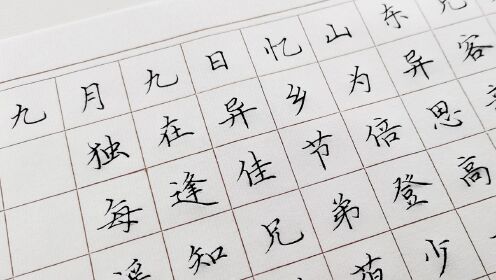 九月九日忆山东兄
独在异乡为异客
每逢佳节倍思
遥知兄弟登高
插少